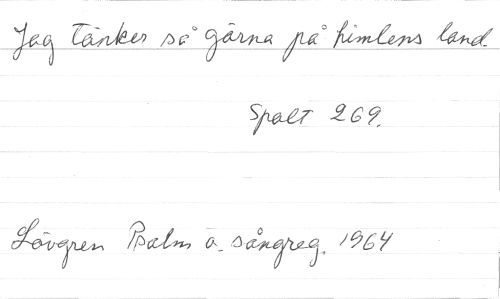 Jag tänker så gärna på himlens land.
Spalt 269.
Lövgren Psalm o. sångreg. 1964